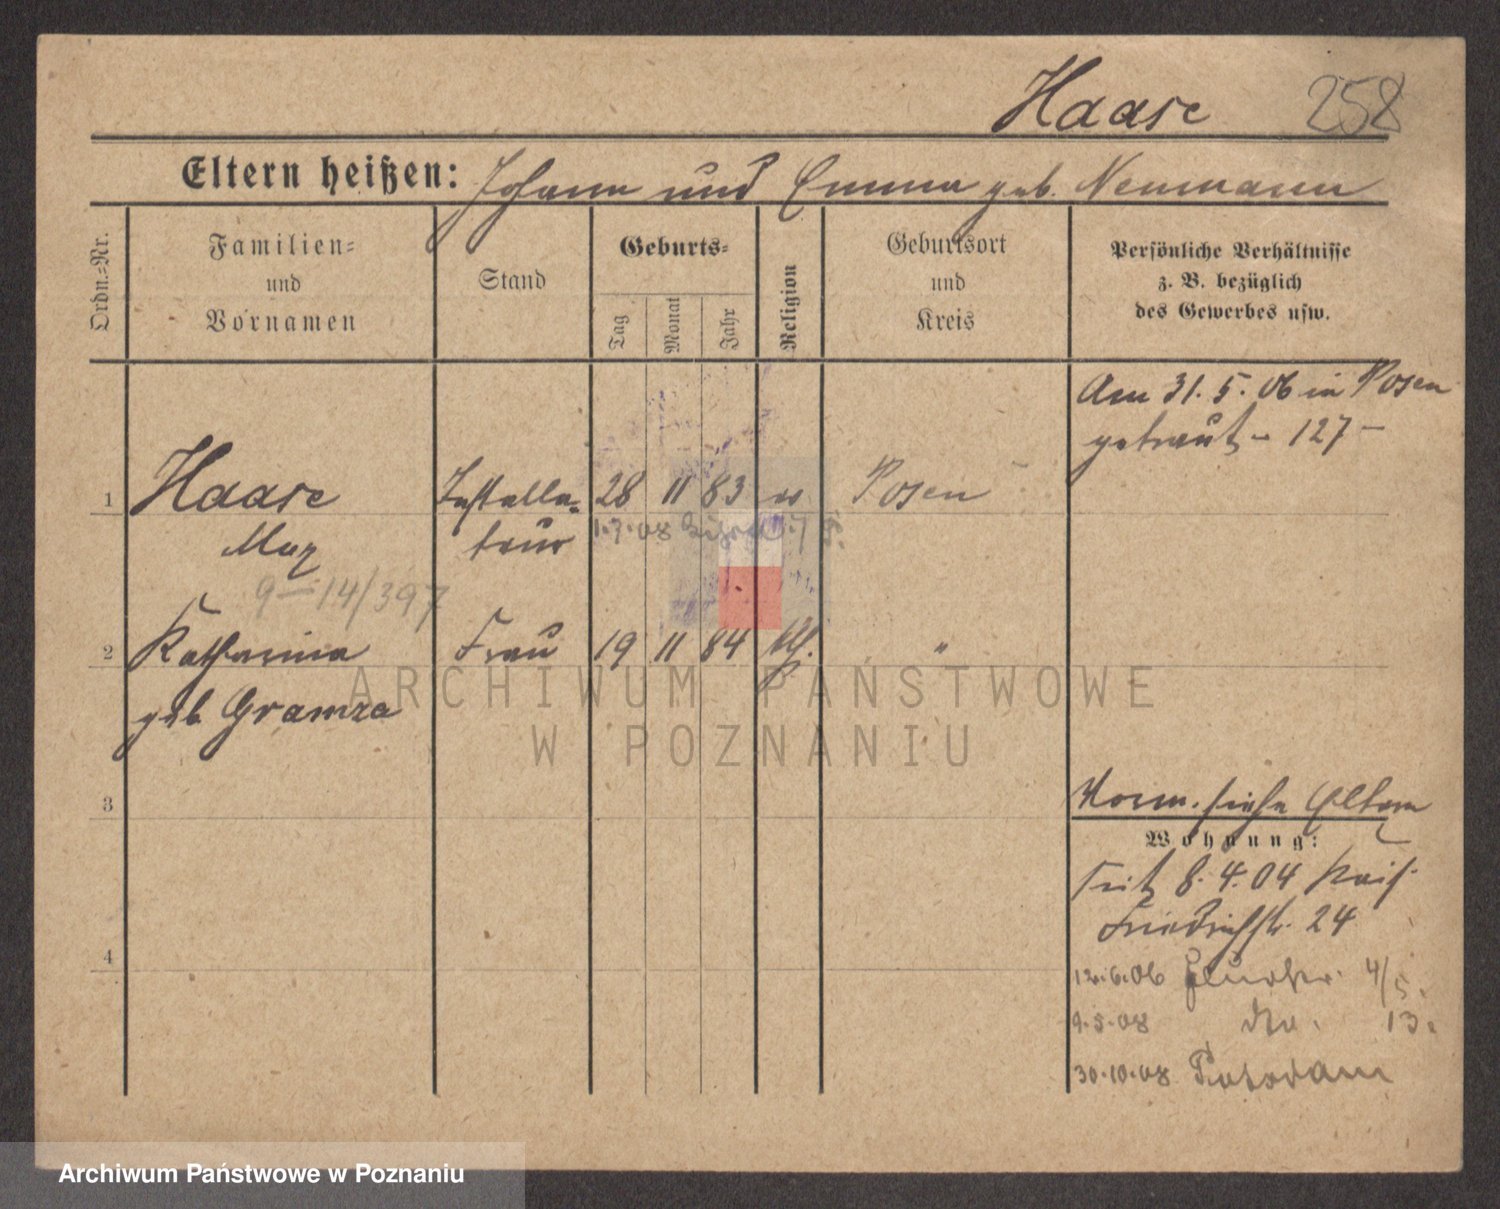 Haase 258
Eltern heißen: Johann und Emma geb. Neumann
Ordn.-Nr.
Familien-
und
Vornamen
Stand
Geburts-
Tag
Monat
Jahr
Religion
Geburtsort
und
Kreis
Persönliche Verhältnisse
z. B. bezüglich
des Gewerbes usw.
Am 31.5.06 in Posen
getraut - 127 -
1 Haase Installa- 28 11 83 ev Posen
Max teur
1.7.08
9-14/397
2 Katharina Frau 19 11 84 kth. "
geb Gramza
ARCHIWUM PAŃSTWOWE
W POZNANIU
3
Vorm. siehe Eltern
Wohnung:
seit 8.4.04 Kais.
Friedrichstr. 24
4
12.6.06 4/5.
9.5.08 13.
30.10.08 Potsdam
Archiwum Państwowe w Poznaniu